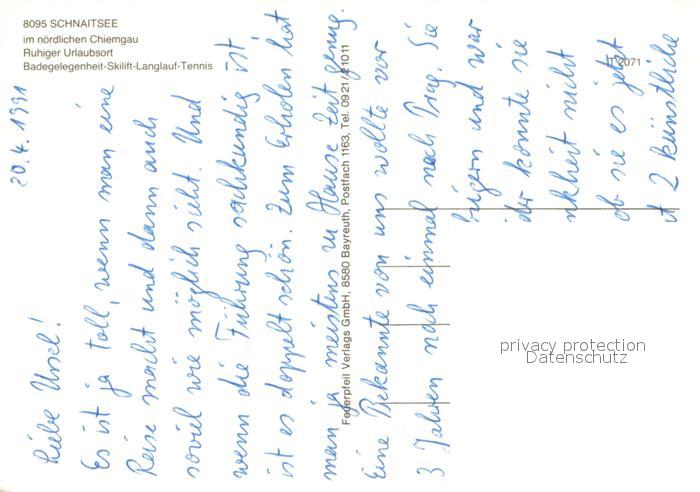 8095 SCHNAITSEE
im nördlichen Chiemgau
Ruhiger Urlaubsort
Badegelegenheit-Skilift-Langlauf-Tennis
T 2071
Federpfeil Verlags GmbH, 8580 Bayreuth, Postfach 1163, Tel. 0921/21011
20.4.1991
Liebe Ursel!
Es ist ja toll, wenn man eine
Reise macht und dann auch
soviel wie möglich sieht. Und
wenn die Führung sachkundig ist,
ist es doppelt schön. Zum Erholen hat
man ja meistens zu Hause Zeit genug.
Eine Bekannte von uns wollte vor
3 Jahren noch einmal nach Prag. Sie
bürgern und war
der konnte sie
nkheit nicht
ob sie es jetzt
it 2 künstliche
privacy protection
Datenschutz